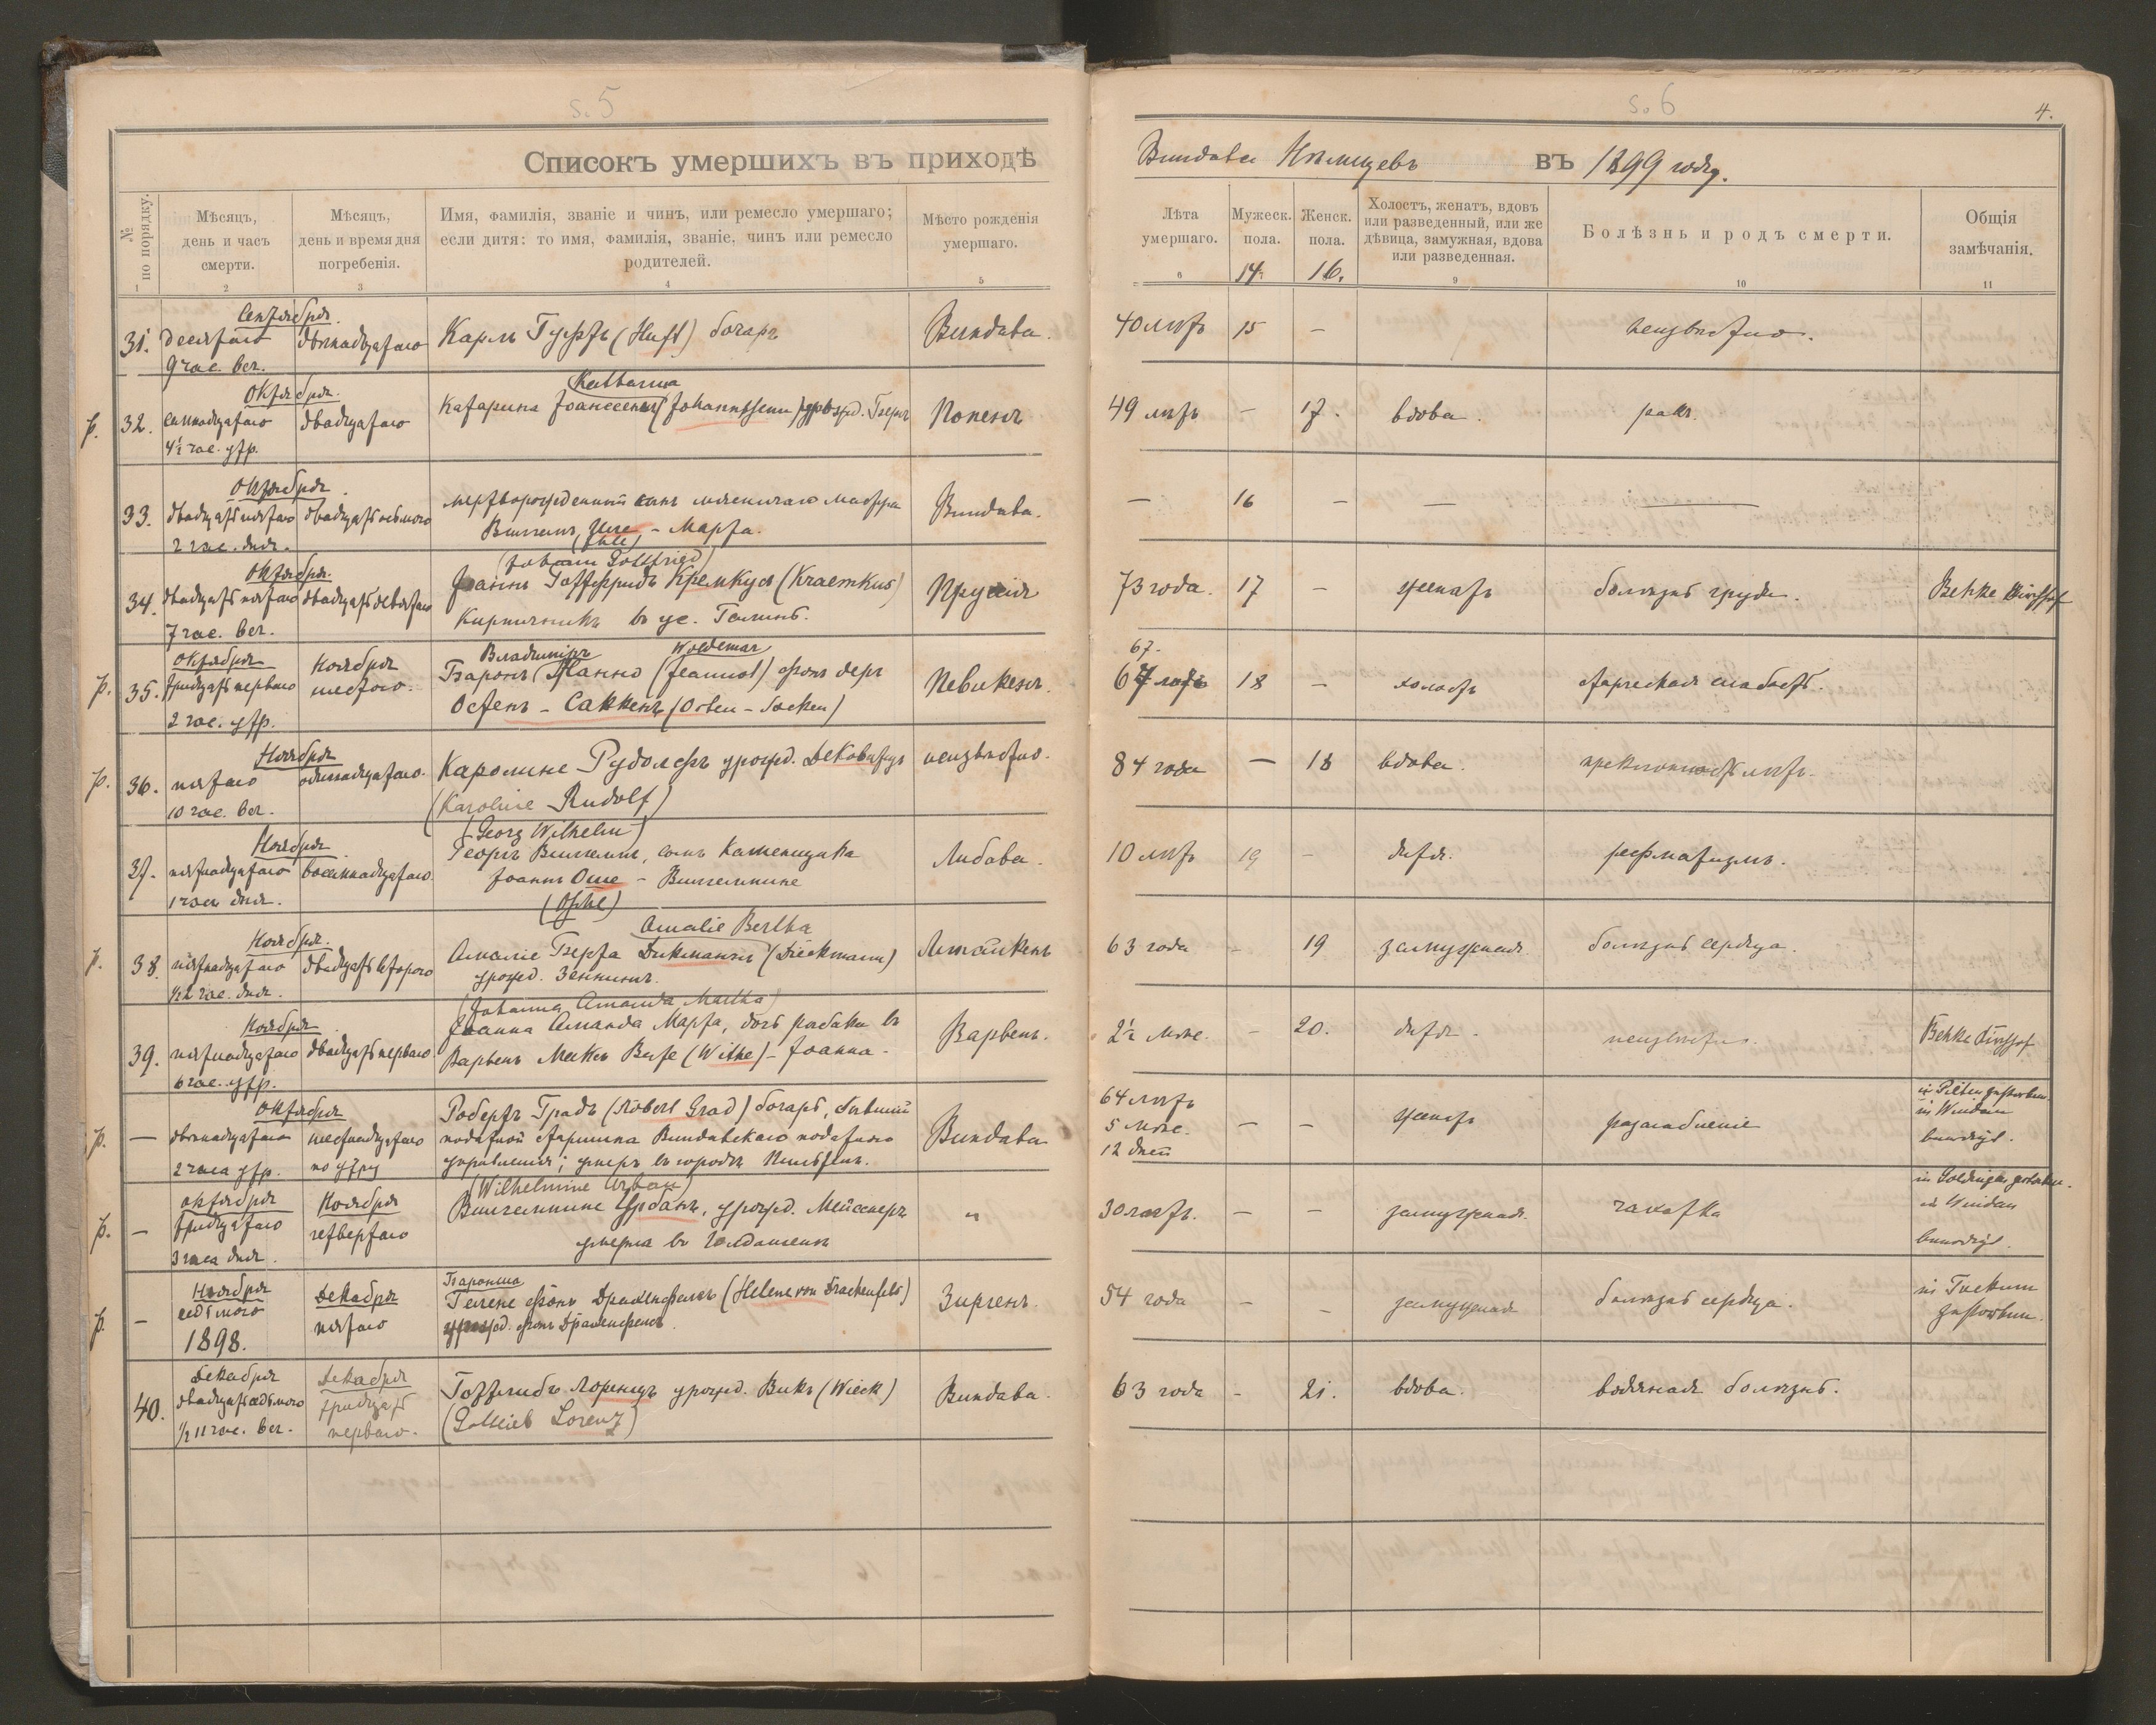 s. 5
Списокъ умершихъ въ приходѣ
№ по порядку.
Мѣсяцъ, день и часъ смерти.
Мѣсяцъ, день и время дня погребенія.
Имя, фамилія, званіе и чинъ, или ремесло умершаго;
если дитя: то имя, фамилія, званіе, чинъ или ремесло
родителей.
Мѣсто рожденія умершаго.
1 2 3 4 5
Сентября.
31. десятаго двѣнадцатаго Карлъ Гуфтъ (Huft) бочаръ Виндава.
9 час. веч.
Октября. Katharina
p. 32. двадцатаго Катарина Іоансенъ (Johannssenn) урожд. Попенъ
4½ час. утр.
Октября.
33. двадцать пятаго двадцать мертворожденный сынъ мясничаго мастера Виндава.
2 час. дня. Вильгельмъ (Ihle) - Марта.
Октября. (Johann Gottfried)
34. двадцать пятаго двадцать девятаго Іоаннъ Готтфридъ Кремкусъ (Kraemkus) Пруссія
7 час. веч. Кирпичникъ въ ус.
Октября Ноября Владимиръ Woldemar
p. 35. тридцать перваго шестого. Баронъ Жанно (Jeannot) фонъ деръ Певикенъ.
2 час. утр. Остенъ - Саккенъ (Osten - Sacken)
Ноября
p. 36. пятаго одиннадцатаго. Каролине Рудольфъ урожд. неизвѣстно.
10 час. веч. (Karoline Rudolf)
Ноября (Georg Wilhelm)
37. пятнадцатаго восемнадцатаго. Георгъ Вильгельмъ, сынъ Каменщика Либава.
1 часъ дня. Іоаннъ Оше - Вильгельмине
(Osche)
Ноября. Amalie Bertha
p. 38. пятнадцатаго двадцать второго Амаліе Берта Дикманнъ (Dieckmann)
½2 час. дня. урожд.
Ноября (Johanna Amanda Martha)
39. пятнадцатаго двадцать перваго Іоанна Аманда Марта, дочь рыбака въ Варвенъ.
6 час. утр. Варвенъ Вите (Withe) - Іоанна.
Октября Робертъ Градъ (Robert Grad) бочаръ, бывшій
p. — двѣнадцатаго шестнадцатаго податной старшина Виндавскаго податного Виндава
2 часа утр. по утру управленія; умеръ въ городѣ Пильтенъ.
октября Ноября (Wilhelmine Urban)
p. — тридцатаго четвертаго Вильгельмине Урбанъ, урожд. Мейсснеръ "
3 часа дня. умерла въ Гольдингенъ
Ноября Декабря Баронша
p. — седьмого пятаго Гелене фонъ Дракенфельсъ (Helene von Drackenfels) Зиргенъ.
1898. урожд. фонъ Дракенфельсъ
Декабря Декабря
40. двадцать седьмого тридцать Готтлибъ Лоренцъ урожд. Викъ (Wieck) Виндава.
½11 час. веч. перваго. (Gottlieb Lorenz)
s. 6
4.
Виндава Нѣмцевъ въ 1899 году.
Лѣта умершаго.
Мужеск. пола.
Женск. пола.
Холостъ, женатъ, вдовъ
или разведенный, или же
дѣвица, замужная, вдова
или разведенная.
Болѣзнь и родъ смерти.
Общія замѣчанія.
6 14. 16. 9 10 11
40 лѣтъ 15 — неизвѣстно.
49 лѣтъ — 17. вдова. ракъ.
— 16 — — —
73 года. 17 — женатъ болѣзнь груди.
67.
67 лѣтъ 18 — холостъ старческая слабость.
84 года — 18 вдова. преклонность лѣтъ.
10 лѣтъ 19 — дитя. ревматизмъ.
63 года - 19 замужная. болѣзнь сердца.
2½ мѣс. - 20. дитя. неизвѣстно.
64 лѣтъ in Pilten gestorben
5 мѣс. — — женатъ разслабленіе in Windau
12 дней beerdigt.
in Goldingen gestorben.
30 лѣтъ. — — замужная. чахотка in Windau
beerdigt.
54 года — — замужная болѣзнь сердца. in Tuckum
gestorben.
63 года - 21. вдова. водяная болѣзнь.